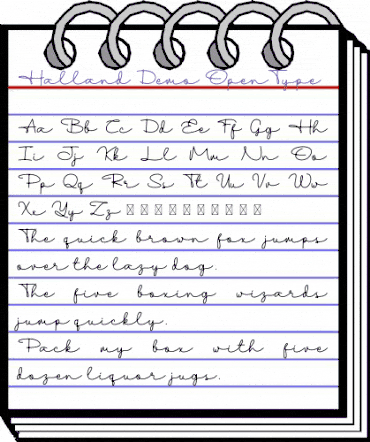 Halland Demo Open Type
Aa Bb Cc Dd Ee Ff Gg Hh
Ii Jj Kk Ll Mm Nn Oo
Pp Qq Rr Ss Tt Uu Vv Ww
Xx Yy Zz
The quick brown fox jumps
over the lazy dog.
The five boxing wizards
jump quickly.
Pack my box with five
dozen liquor jugs.